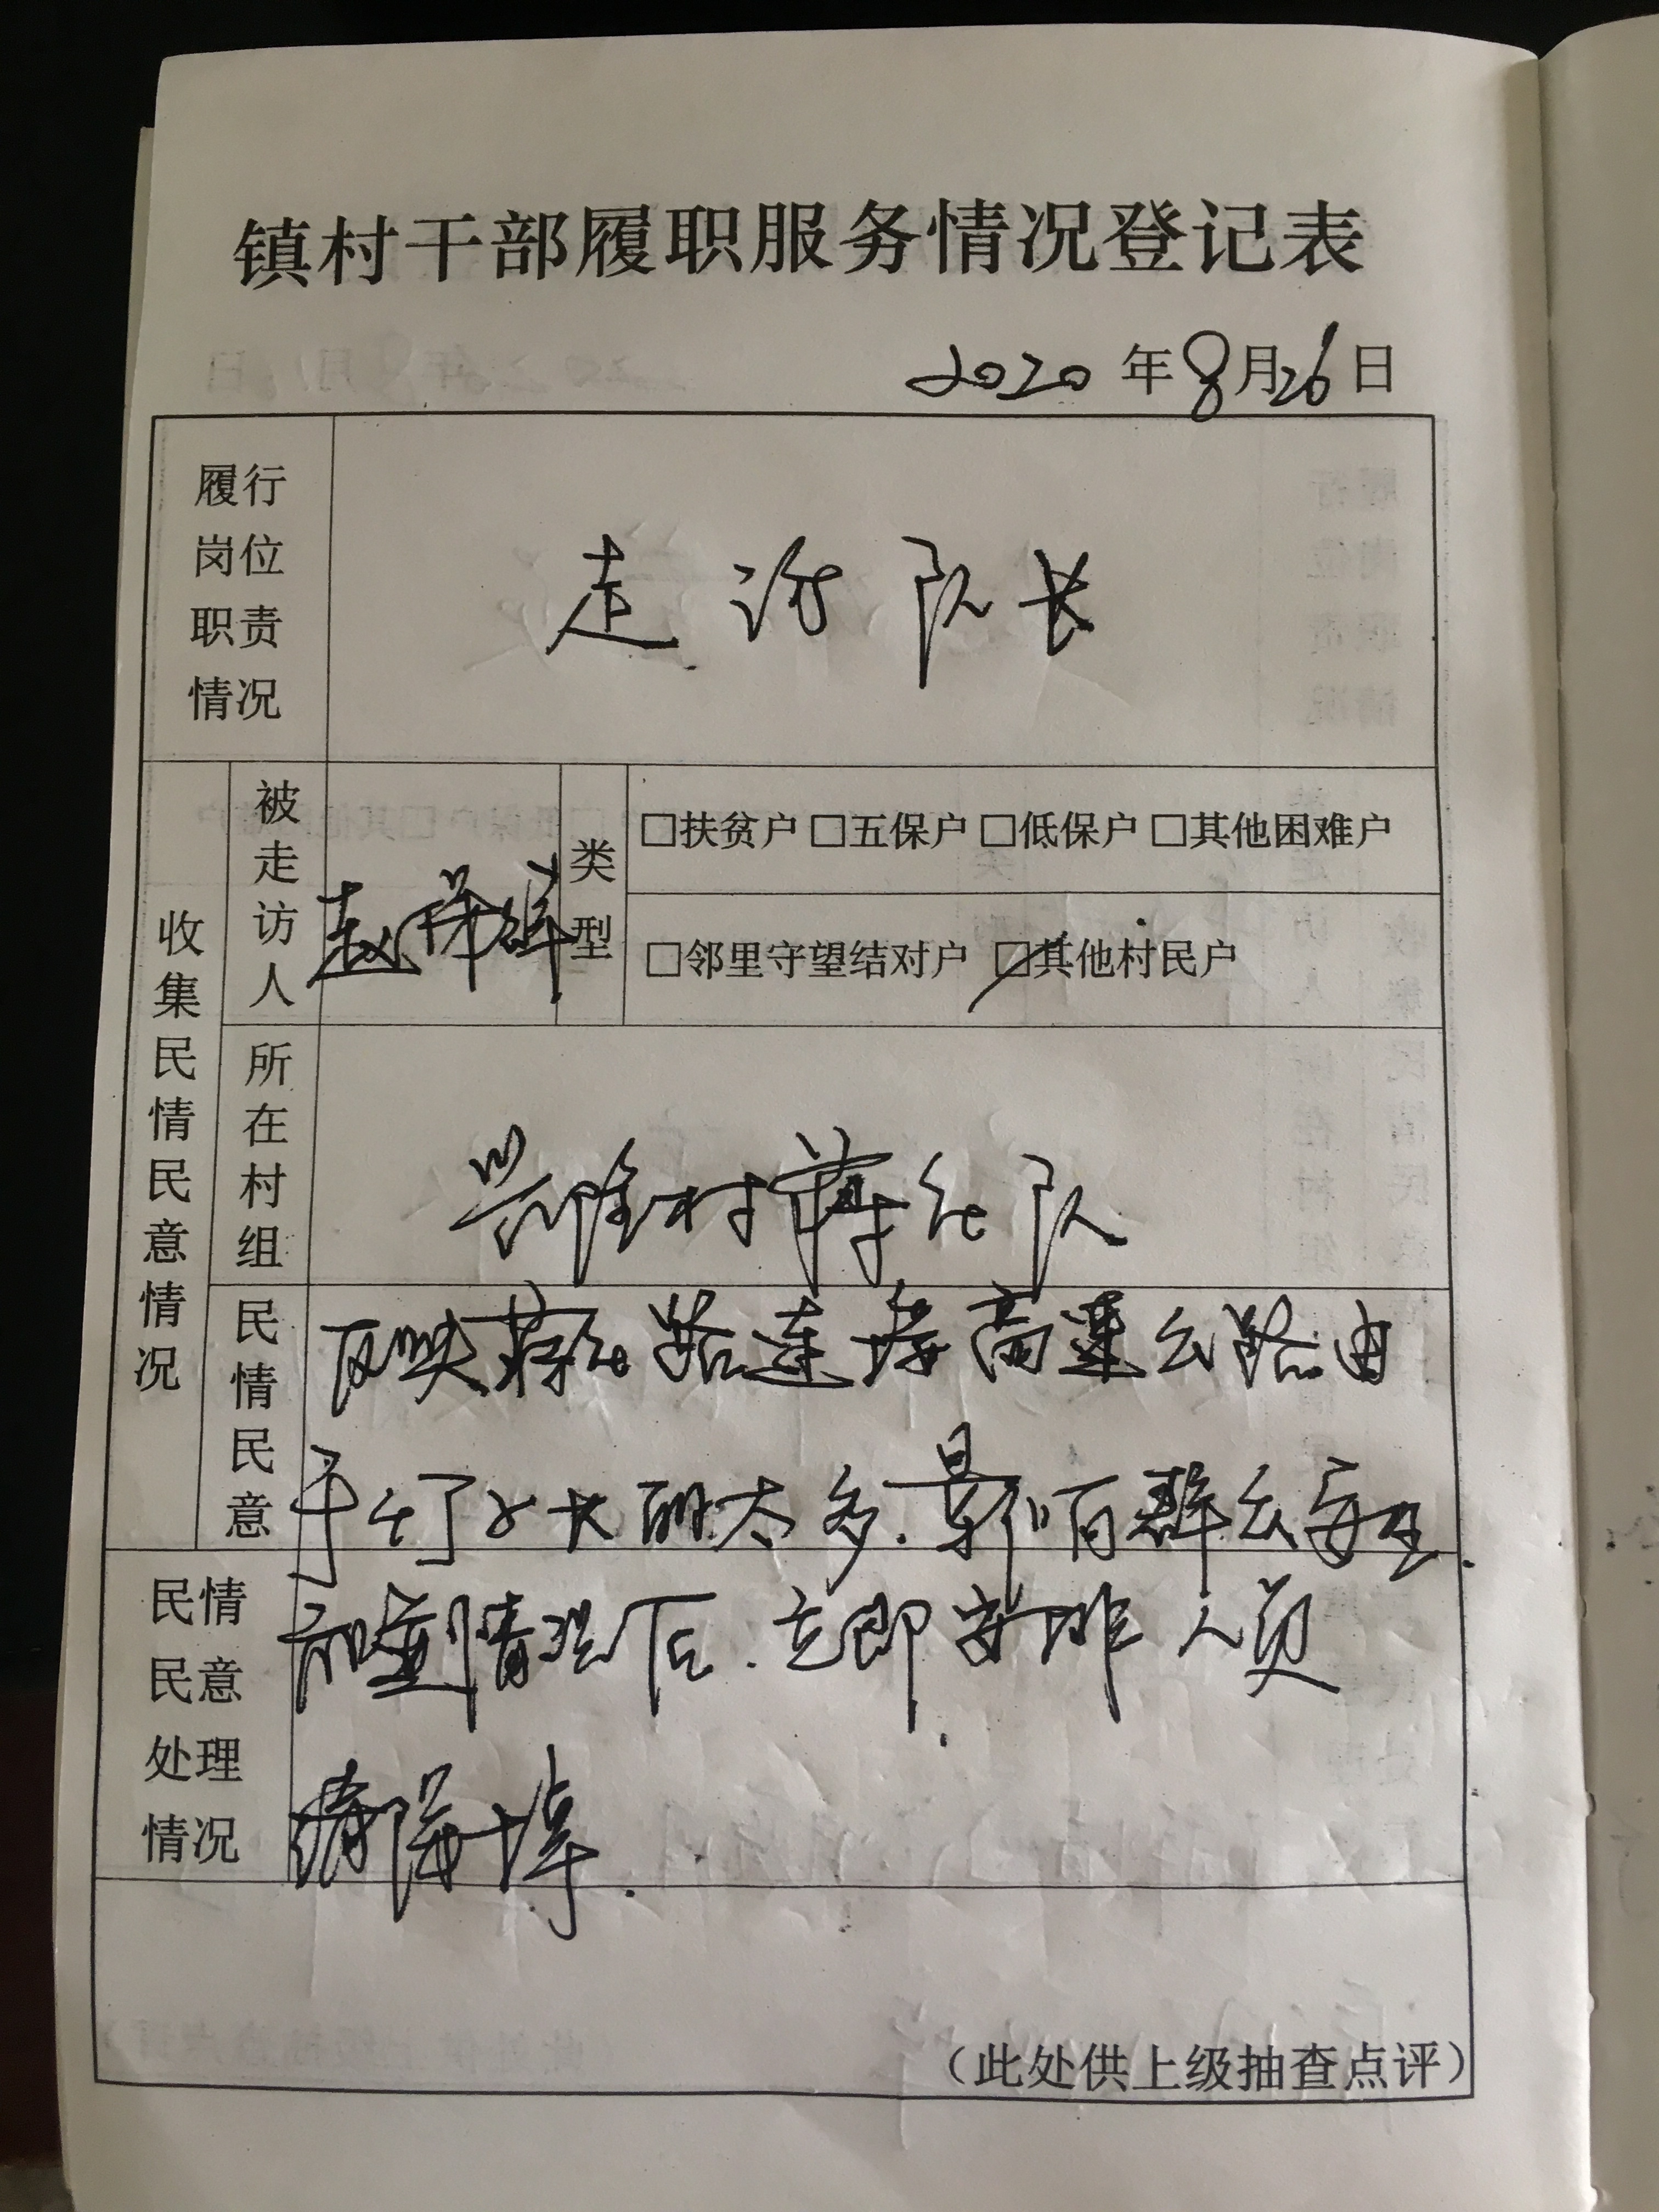 镇村干部履职服务情况登记表
2020年8月26日
履行岗位职责情况
走访队长
收集民情民意情况
被走访人
赵
类型
□扶贫户 □五保户 □低保户 □其他困难户
□邻里守望结对户 □其他村民户
所在村组
兴隆村蒋仓队
民情民意
反映蒋仓路连接高速公路由
于 长的太多.影响群众安全.
民情民意处理情况
情况后.立即安排人员
清除掉.
(此处供上级抽查点评)